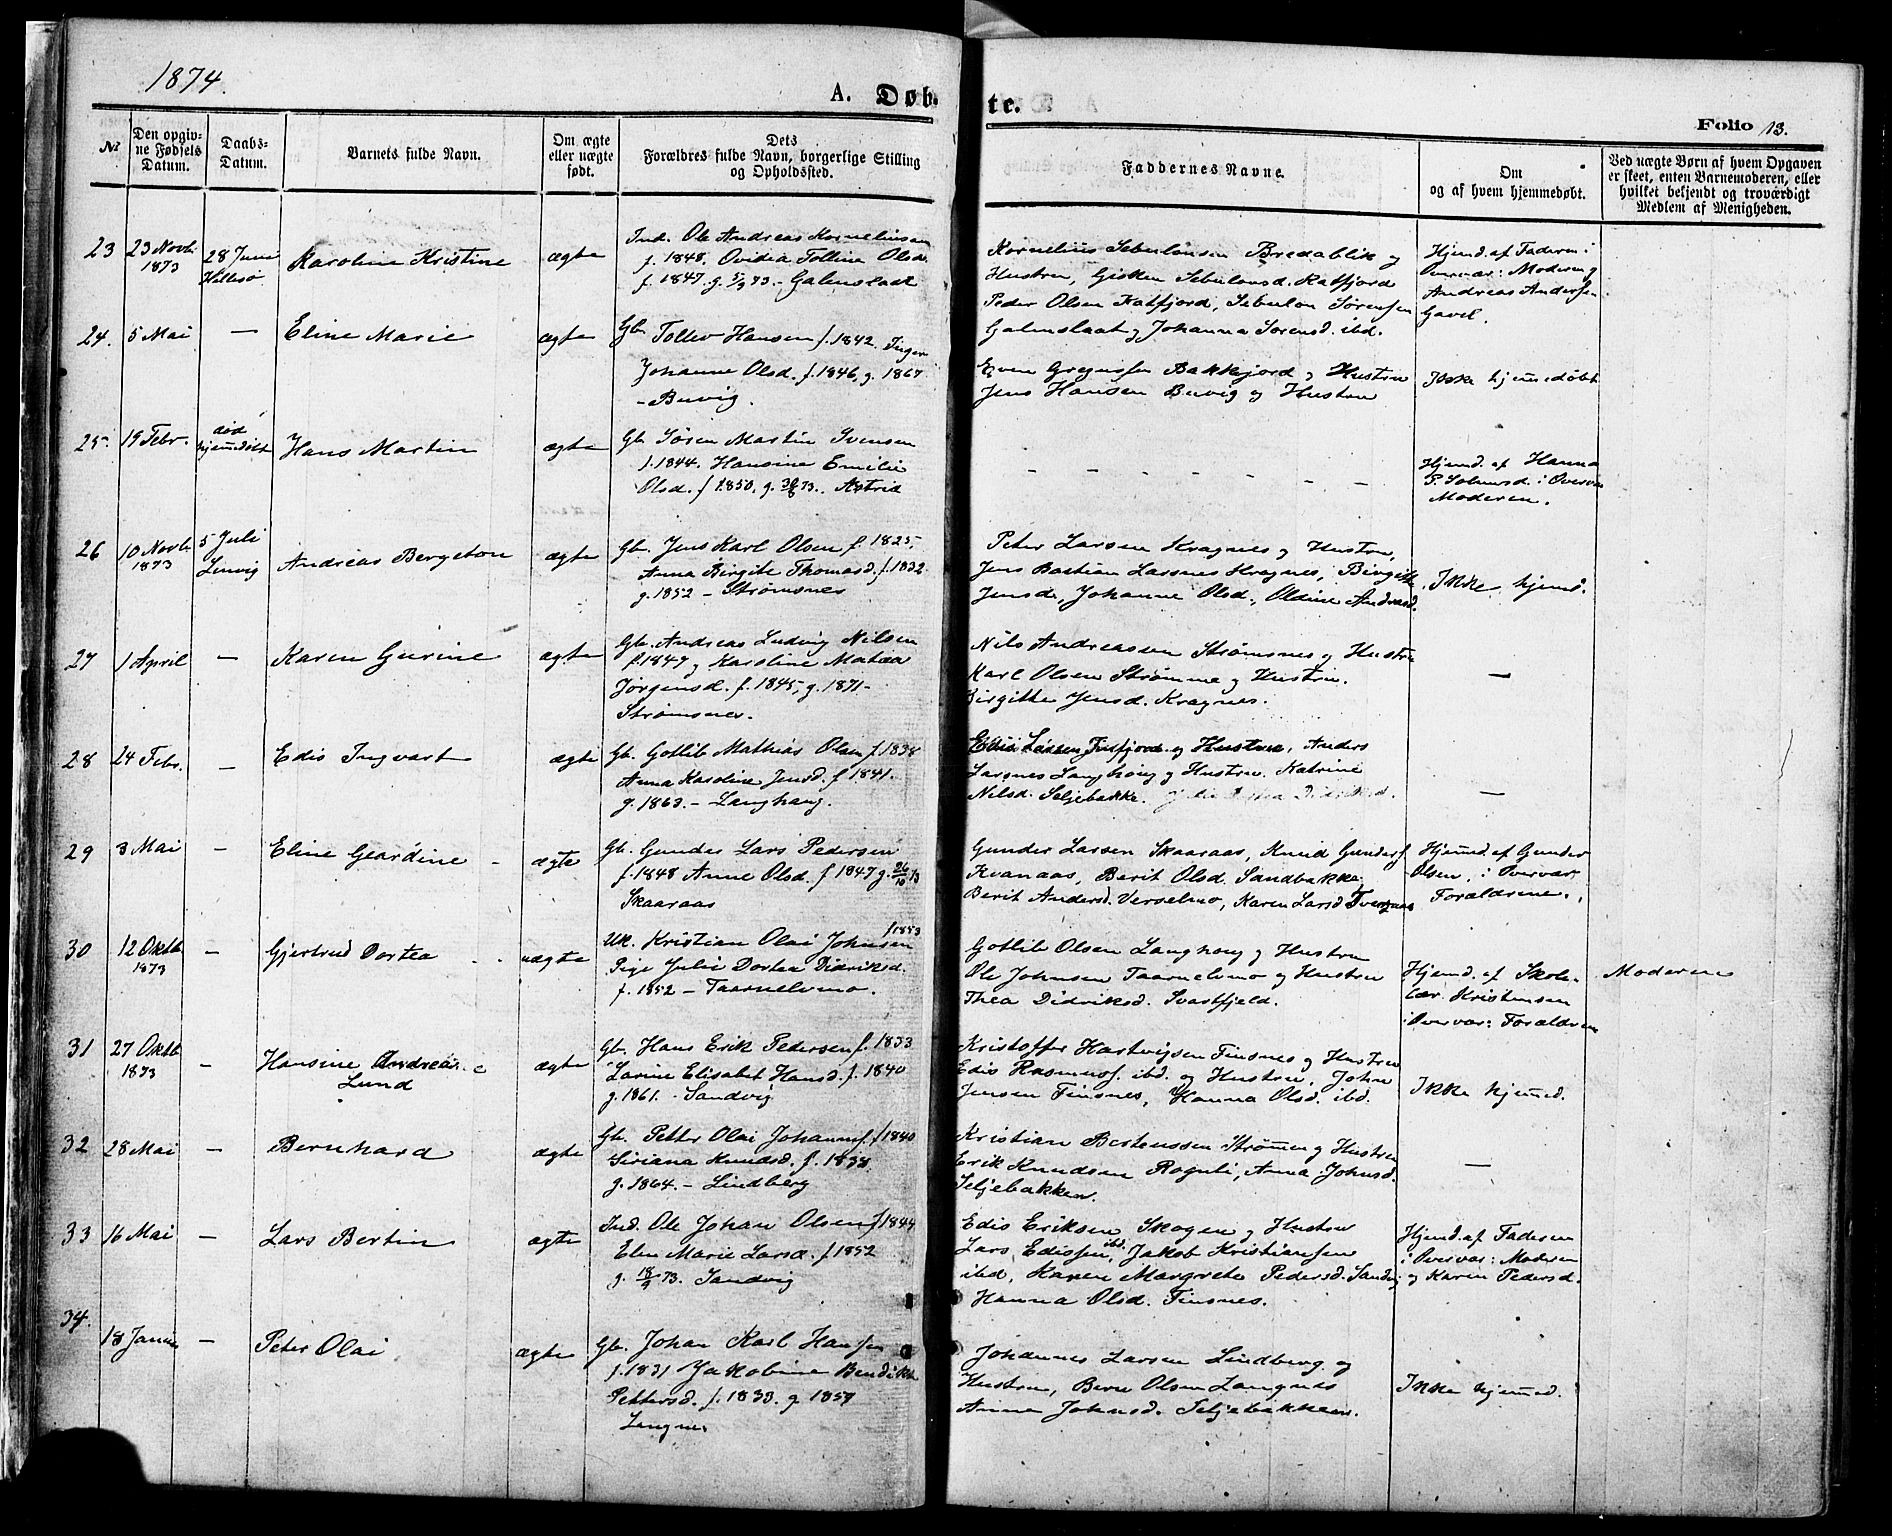 1874.
A. Døbte.
Folio 13.
No
Den opgivne Fødsels Datum.
Daabs-Datum.
Barnets fulde Navn.
Om ægte eller uægte født.
Dets Forældres fulde Navn, borgerlige Stilling og Opholdssted.
Faddernes Navne.
Om og af hvem hjemmedøbt.
Ved uægte Børn af hvem Opgaven er skeet, enten Barnemoderen, eller hvilket bekjendt og troværdigt Medlem af Menigheden.
23
23 Novb. 1873
28 Juni Hillesø
Karoline Kristine
ægte
Ind. Ole Andreas Korneliussen
f. 1848. Ovidia Tolline Olsd.
f. 1847. g. 5/9 73. - Galenslaat
Kornelius Sebulonsen Bredablik og
Hustru, Gisken Sebulonsd. Katfjord
Peder Olsen Katfjord, Sebulon Sørensen
Galenslaat og Johanna Sørensd. ibd.
Hjemd. af Faderen i
Overvær: Moderen og
Andreas Anders.
Gavel.
24.
5 Mai
—
Eline Marie
ægte
Gb. Tollev Hansen f. 1842. Inger
Johanne Olsd. f. 1846, g. 1867
- Buvig.
Even Gregusen Bakkejord og Hustru
Jens Hansen Buvig og Hustru
Ikke hjemmedøbt
25.
19 Febr.
død hjemmedøbt
Hans Martin
ægte
Gb. Søren Martin Svensen
f. 1844. Hansine Emilie
Olsd. f. 1850. g. 30/6 73. Astrid
- - - - - -
Hjemd. af Hanna
P. Salmsd. i Overvær
Moderen.
26
10 Novb. 1873
5 Juli Lenvig
Andreas Bergeton
ægte
Gb. Jens Karl Olsen f. 1825,
Anna Birgite Thomasd. f. 1832
g. 1852 - Strømsnes
Peter Larsen Kragnes og Hustru,
Jens Bastian Larsnes Kragnes, Birgitte
Jensd., Johanne Olsd., Oldine Andreasd.
Ikke hjemd.
27
1 April
—
Karen Gurine
ægte
Gb. Andreas Ludvig Nilsen
f. 1847 og Karoline Matea
Jørgensd. f. 1845, g. 1871 -
Strømsnes.
Nils Andreassen Strømsnes og Hustru
Karl Olsen Strømme og Hustru.
Birgitte Jensd. Kragnes.
—
28
24 Febr.
—
Edis Ingvart
ægte
Gb. Gotlib Mathias Olsen f. 1838
Anna Karoline Jensd. f. 1841.
g. 1863. - Langhaug.
Edis Larsen Finfjord og Hustru, Anders
Larsnes Langhaug og Hustru. Katrine
Nilsd. Seljebakke.
—
29
3 Mai
—
Eline Geardine
ægte
Gb. Gunder Lars Pedersen
f. 1848 Anne Olsd. f 1847 g. 26/10 73
Skaaraas
Gunder Larsen Skaaraas, Knud Gunders.
Kvanaas, Berit Olsd. Sandbakke
Berit Andersd. Verselmo, Karen Larsd Tveraas
Hjemd. af Gunder
Olsen, i Overvær
Forældrene.
30
12 Oktb. 1873
—
Gjertrud Dortea
uægte
Uk. Kristian Olai Johnsen f 1853
Pige Julie Dortea Didriksd.
f. 1852 - Taarnelvmo.
Gotlib Olsen Langhaug og Hustru
Ole Johnsen Taarnelvmo og Hustru
Thea Didriksd. Svartfjeld.
Hjemd. af Skole-
lær. Kristensen
i Overvær: Forældrene
Moderen
31
27 Oktb. 1873
—
Hansine Andreas
Lund
ægte
Gb. Hans Erik Pedersen f. 1833
Karine Elisabet Hansd. f. 1840
g. 1861. - Sandvig
Kristoffer Hartvigsen Finsnes og Hustru
Edis Rasmus. ibd. og Hustru, John
Jensen Finsnes, Hanna Olsd. ibd.
Ikke hjemd.
32
28 Mai
—
Bernhard
ægte
Gb. Petter Olai Johanns. f 1840
Siriana Knudsd. f. 1838.
g. 1864. - Lindberg
Kristian Bertenssen Strømmen og Hustru
Erik Knudsen Rognli, Anna Johnsd.
Seljebakken.
—
33
16 Mai
—
Lars Bertin
ægte
Ind. Ole Johan Olsen f 1844
Elen Marie Larsd. f 1852
g. 18/9 73. Sandvig
Edis Eriksen Skogen og Hustru
Lars Edissen ibd., Jakob Kristiansen
ibd, Karen Margrete Pedersd. Sandvig
Hanna Olsd. Finsnes.
Hjemd. af Faderen
i Overvær: Moderen
og Karen Pedersd.
34.
18 Januar
—
Peter Olai
ægte
Gb. Johan Karl Hansen
f. 1831 Jakobine Bendikte
Pettersd. f. 1833. g 1857
Langnes
Johannes Larsen Lindberg og
Hustru, Bern Olsen Langnes
Anne Johnsd. Seljebakken.
Ikke hjemd.